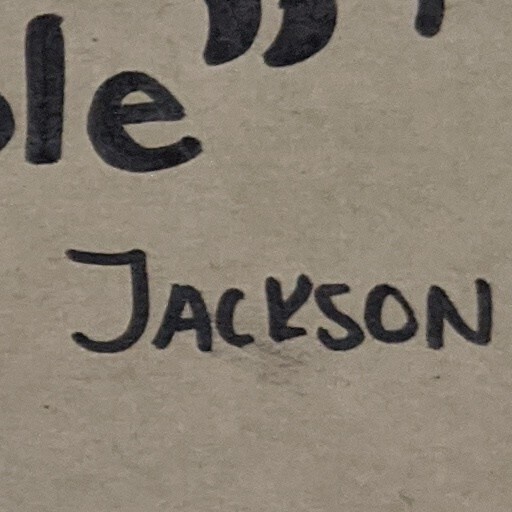 le”
JACKSON